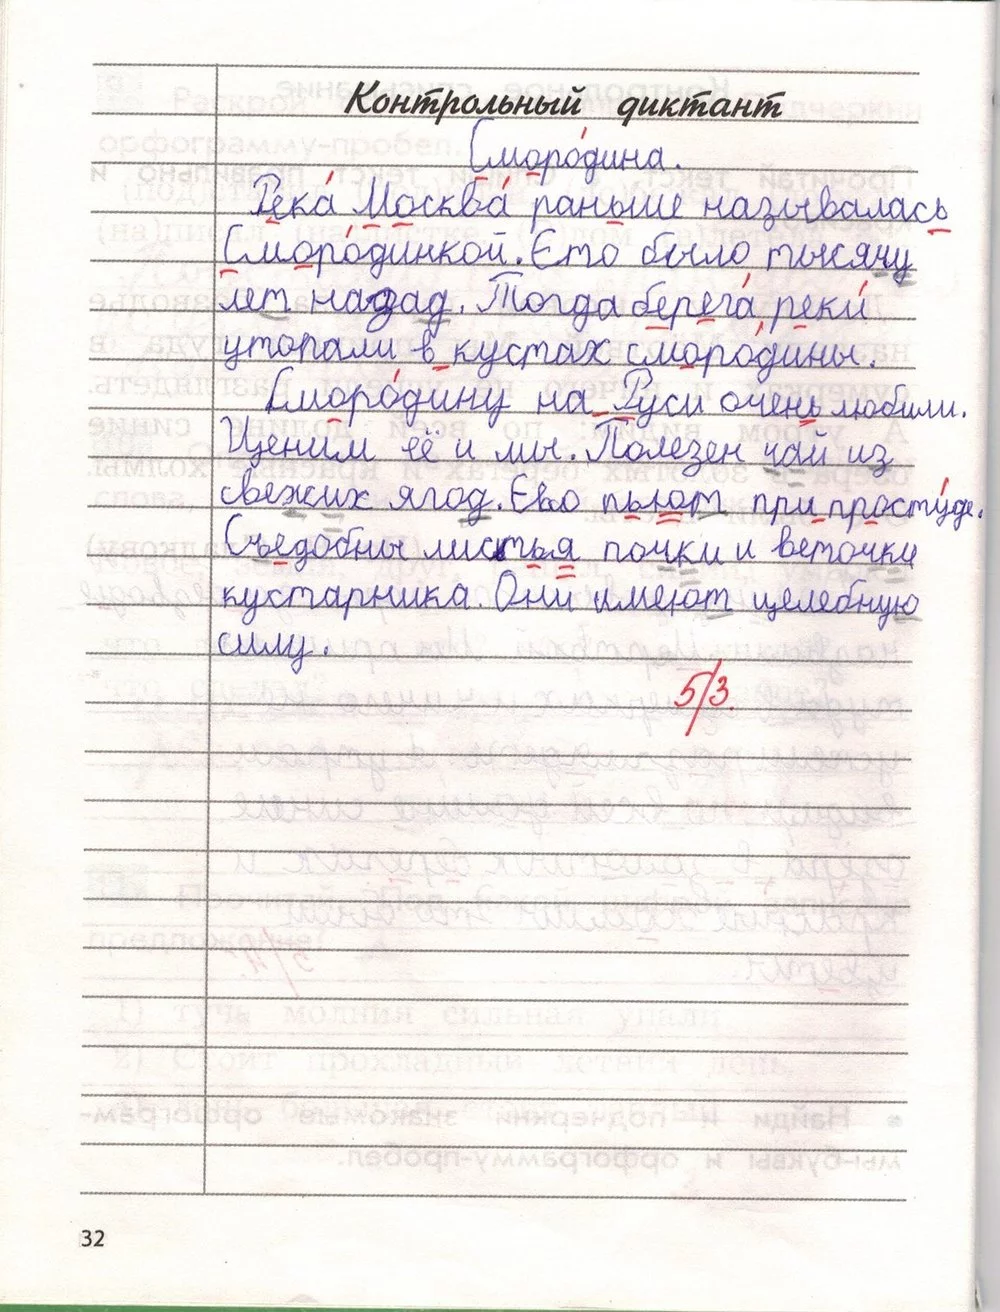 Контрольный диктант
Смородина.
Река Москва раньше называлась
Смородинкой. Ето было тысячу
лет надад. Тогда берега реки
утопали в кустах смородины.
Смородину на Руси очень любили.
Ценим её и мы. Полезен чай из
свежих ягод. Его пьют при простуде.
Съедобны листья почки и веточки
кустарника. Они имеют целебную
силу.
5/3.
32